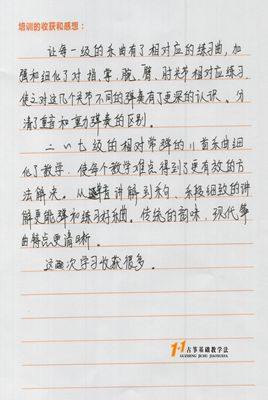 培训的收获和感想：
让每一级的乐曲有了相对应的练习曲，加
强和细化了对指、掌、腕、臂、肘关节相对应练习，
使之对这几个关节不同的弹奏有了更深的认识。分
清了重音和重力弹奏的区别。
二、以七级的相对常弹的八首乐曲细
化了教学，使每个教学难点得到了更有效的方
法解决。从弹音讲解到乐句，系统细致的讲
解更能弹和练习好乐曲。传统的韵味，现代筝
曲特点更清晰。
这次学习收获很多。
1+1古筝基础教学法
GUZHENG JICHU JIAOXUEFA